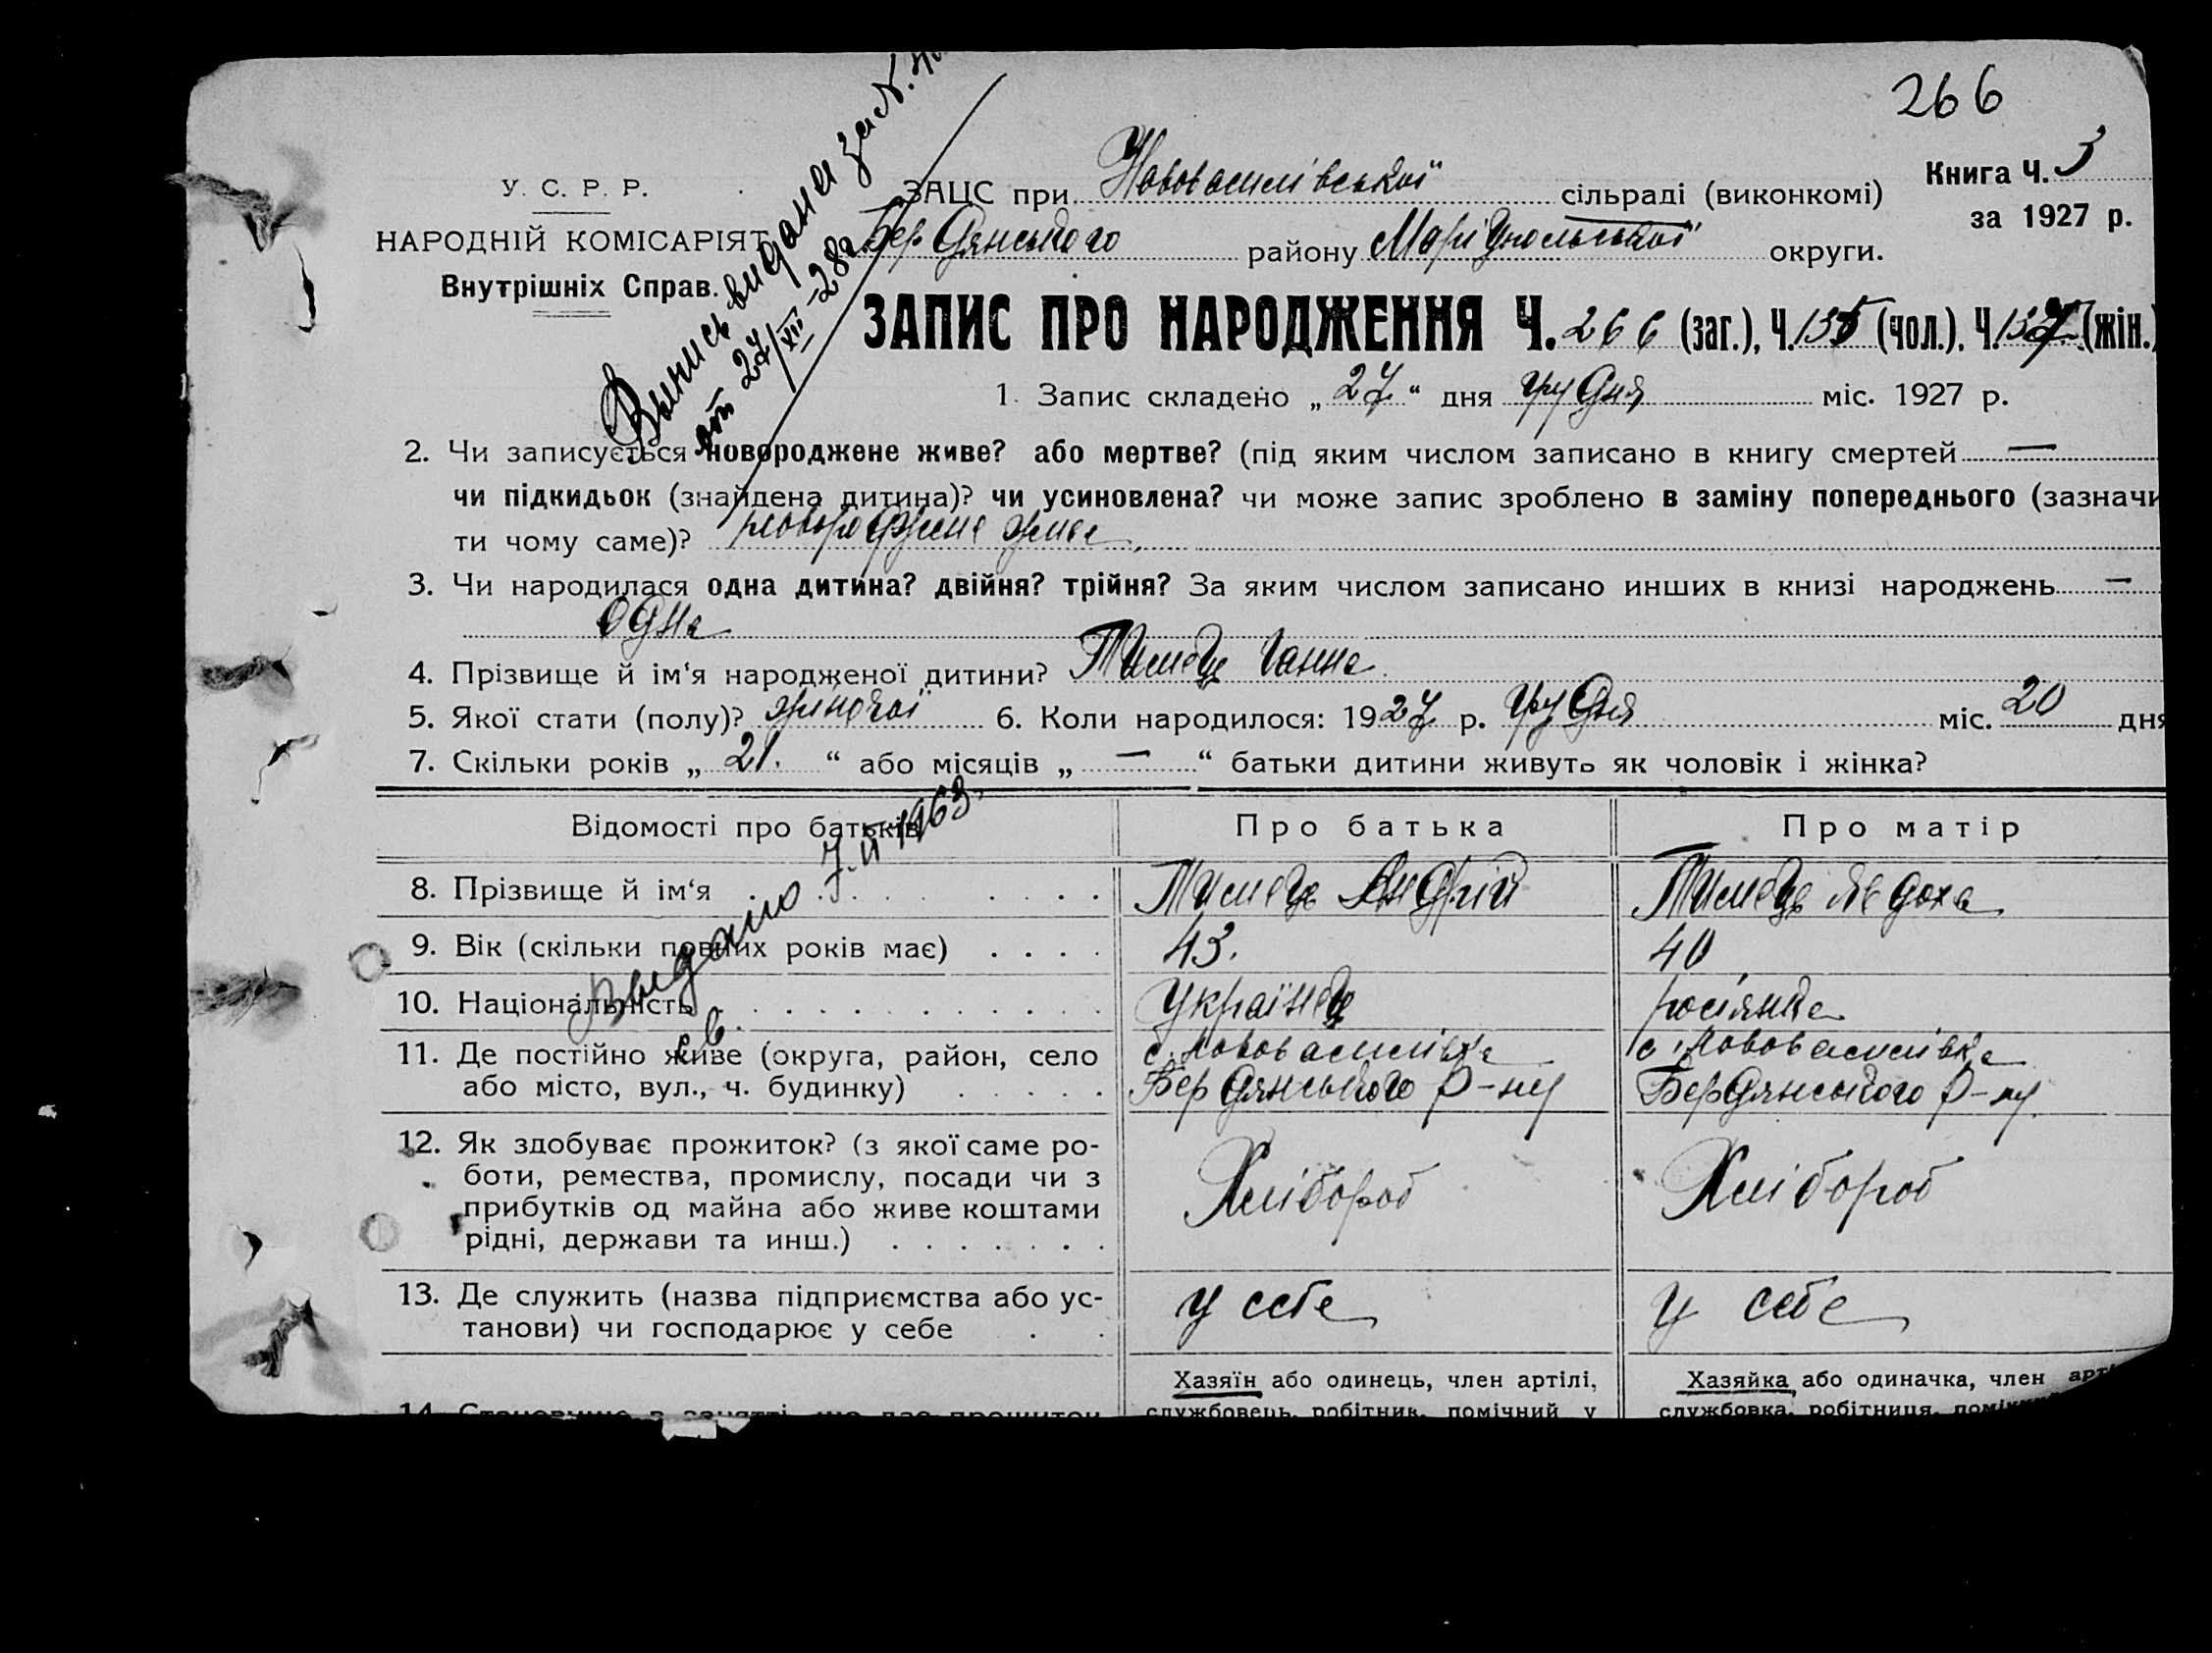 266
У. С. Р. Р.
НАРОДНІЙ КОМІСАРІЯТ
Внутрішніх Справ.
Выпись видана за №
от 27/XII-28 г.
ЗАЦС при Нововасилівської сільраді (виконкомі)
Бердянського району Маріупольської округи.
Книга Ч. 3
за 1927 р.
ЗАПИС ПРО НАРОДЖЕННЯ Ч. 266 (заг.), Ч. 135 (чол.), Ч. (жін.)
1. Запис складено „27“ дня грудня міс. 1927 р.
2. Чи записується новороджене живе? або мертве? (під яким числом записано в книгу смертей —
чи підкидьок (знайдена дитина)? чи усиновлена? чи може запис зроблено в заміну попереднього (зазначи
ти чому саме)? новороджене живе
3. Чи народилася одна дитина? двійня? трійня? За яким числом записано инших в книзі народжень —
одна
4. Прізвище й ім‘я народженої дитини? Ганна
5. Якої стати (полу)? жіночої 6. Коли народилося: 1927 р. грудня міс. 20 дня
7. Скільки років „ 21. “ або місяців „ — “ батьки дитини живуть як чоловік і жінка?
Відомості про батьків
Про батька
Про матір
Выдано 7.II-1963.
св.
8. Прізвище й ім‘я
Андрій
Явдоха
9. Вік (скільки повних років має)
43.
40
10. Національність
Українець
росіянка
11. Де постійно живе (округа, район, село
або місто, вул., ч. будинку)
с. Нововасилівка
Бердянського р-ну
с. Нововасилівка
Бердянського р-ну
12. Як здобуває прожиток? (з якої саме ро-
боти, ремества, промислу, посади чи з
прибутків од майна або живе коштами
рідні, держави та инш.)
Хлібороб
Хлібороб
13. Де служить (назва підприємства або ус-
танови) чи господарює у себе
у себе
у себе
Хазяїн або одинець, член артілі,
службовець, робітник, помічний у
Хазяйка або одиначка, член арті
службовка, робітниця, поміч
14. Становище в занятті, що дає прожиток